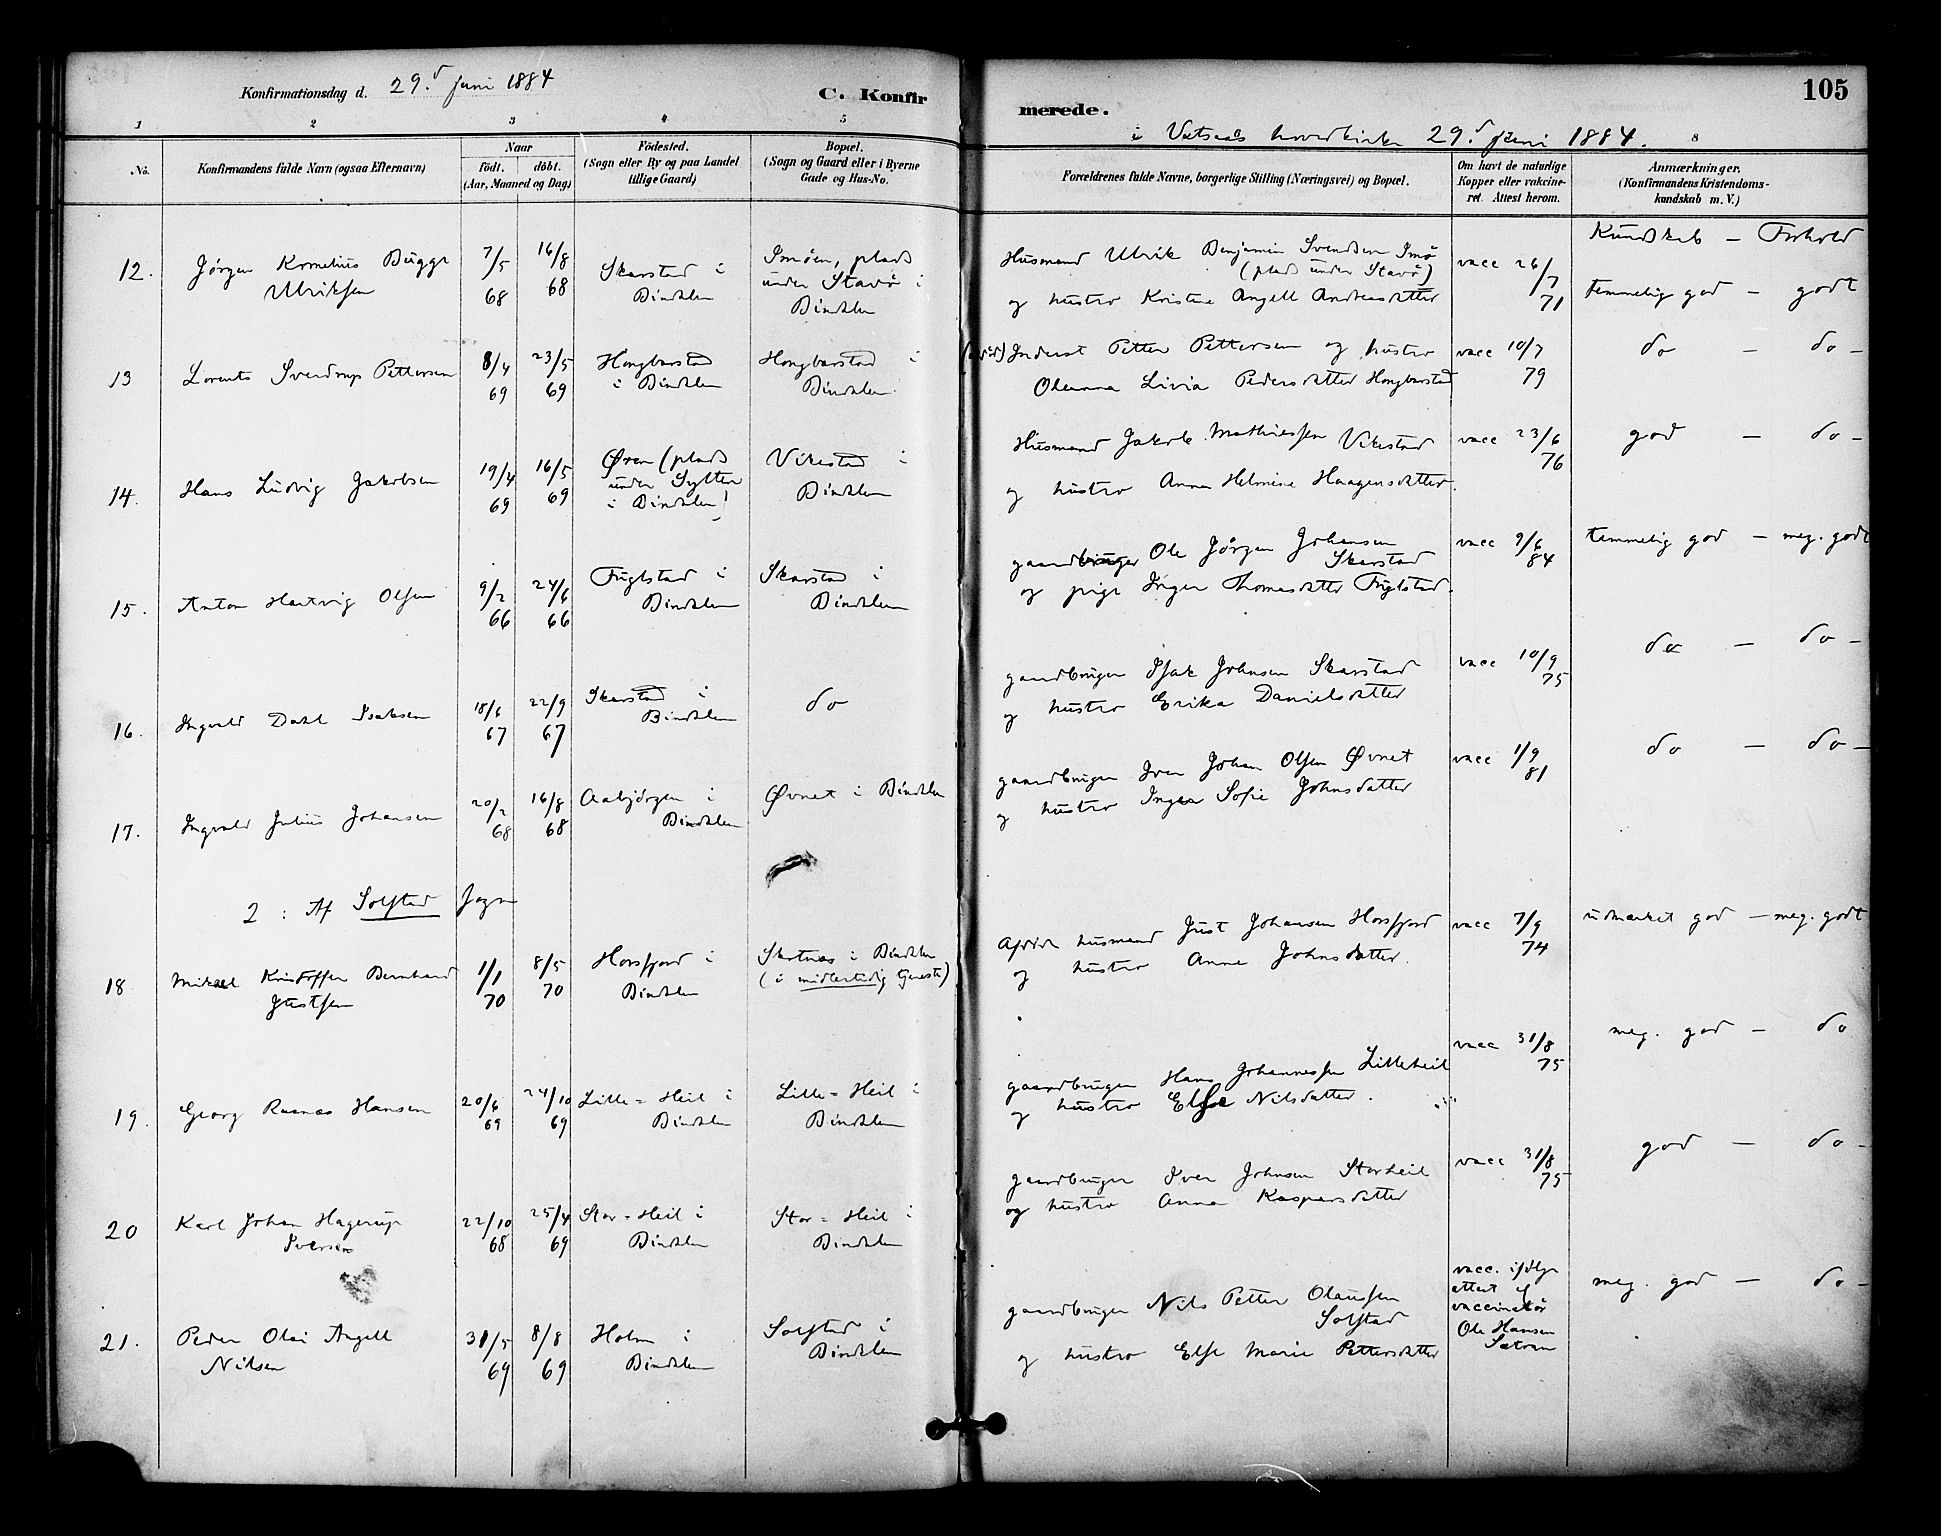 Konfirmationsdag d. 29.d Juni 1884
C. Konfirmerede.
105
i Vatsaas hovedkirke 29.d Juni 1884.
1 2 3 4 5 8
No. Konfirmandens fulde Navn (ogsaa Efternavn)
Naar
födt. döbt.
(Aar, Maaned og Dag)
Födested.
(Sogn eller By og paa Landet
tillige Gaard)
Bopæl.
(Sogn og Gaard eller i Byerne
Gade og Hus-No.
Forældrenes fulde Navne, borgerlige Stilling (Næringsvei) og Bopæl.
Om havt de naturlige
Kopper eller vakcine-
ret. Attest herom.
Anmærkninger.
(Konfirmandens Kristendoms-
kundskab m. V.)
Kundskab — Forhold
12. Jørgen Kornelius Bugge
Ulriksen
7/5 68
16/8 68
Skarstad i
Bindalen
Imøen, plads
under Stavø i
Bindalen
Husmand Ulrik Benjamin Svendsen Imø
(plads under Stavø)
og hustro Kristine Angell Andreasdatter
vacc 26/7 71
temmelig god — godt
13 Lorents Sverdrup Pettersen
8/4 69
23/5 69
Hongbarstad
i Bindalen
Hongbarstad i
Bindalen
Inderst Petter Pettersen og hustro
Oleanna Livia Pedersdatter Hongbarstad
vacc 10/7 79
do — do —
14. Hans Ludvig Jakobsen
19/4 69
16/5 69
Øren (plads
under Sylten
i Bindalen)
Vikestad i
Bindalen
Husmand Jakob Mathiassen Vikestad
og hustro Anna Helmine Haagensdatter.
vacc 23/6 76
god — do —
15. Anton Hartvig Olsen
9/2 66
24/6 66
Fuglstad i
Bindalen
Skarstad i
Bindalen
gaardbruger Ole Jørgen Johansen
Skarstad
og pige Inger Thomasdatter Fuglstad.
vacc 9/6 84
temmelig god — meg. godt
16. Ingvald Dahl Isaksen
18/6 67
22/9 67
Skarstad i
Bindalen
do
gaardbruger Isak Johnsen Skarstad
og hustro Erika Danielsdatter
vacc 10/9 75
do — do —
17. Ingvald Julius Johansen
20/2 68
16/8 68
Aabjørgen i
Bindalen
Øvnet i Bindalen
gaardbruger Iver Johan Olsen Øvnet
og hustro Inger Sofie Johnsdatter
vacc 1/9 81
do — do —
2 : Af Solstad Sogn
18 Mikael Kristoffer Bernhard
Justsen
1/1 70
8/5 70
Horsfjord i
Bindalen
Skotnes i Bindalen
(i midlertidig tjeneste)
Afdøde husmand Just Johansen Horsfjord
og hustro Anne Johnsdatter.
vacc 7/9 74
udmærket god — meg. godt
19. Georg Rasmus Hansen
20/6 69
24/10 69
Lille-Heil i
Bindalen
Lille-Heil i
Bindalen
gaardbruger Hans Johannessen Lilleheil
og hustro Else Nilsdatter.
vacc 31/8 75
meg. god — do
20 Karl Johan Hagerup
Iversen
22/10 68
25/4 69
Stor-Heil i
Bindalen
Stor-Heil i
Bindalen
gaardbruger Iver Johnsen Storheil
og hustro Anna Kaspersdatter
vacc 31/8 75
god — do —
21. Peder Olai Angell
Nilsen
31/5 69
8/8 69
Holm i
Bindalen
Solstad i
Bindalen
gaardbruger Nils Petter Olaussen
Solstad
og hustro Else Marie Pettersdatter
vacc. ifølge
attest af
vaccinatør
Ole Hansen
Sætran
meg. god — do —